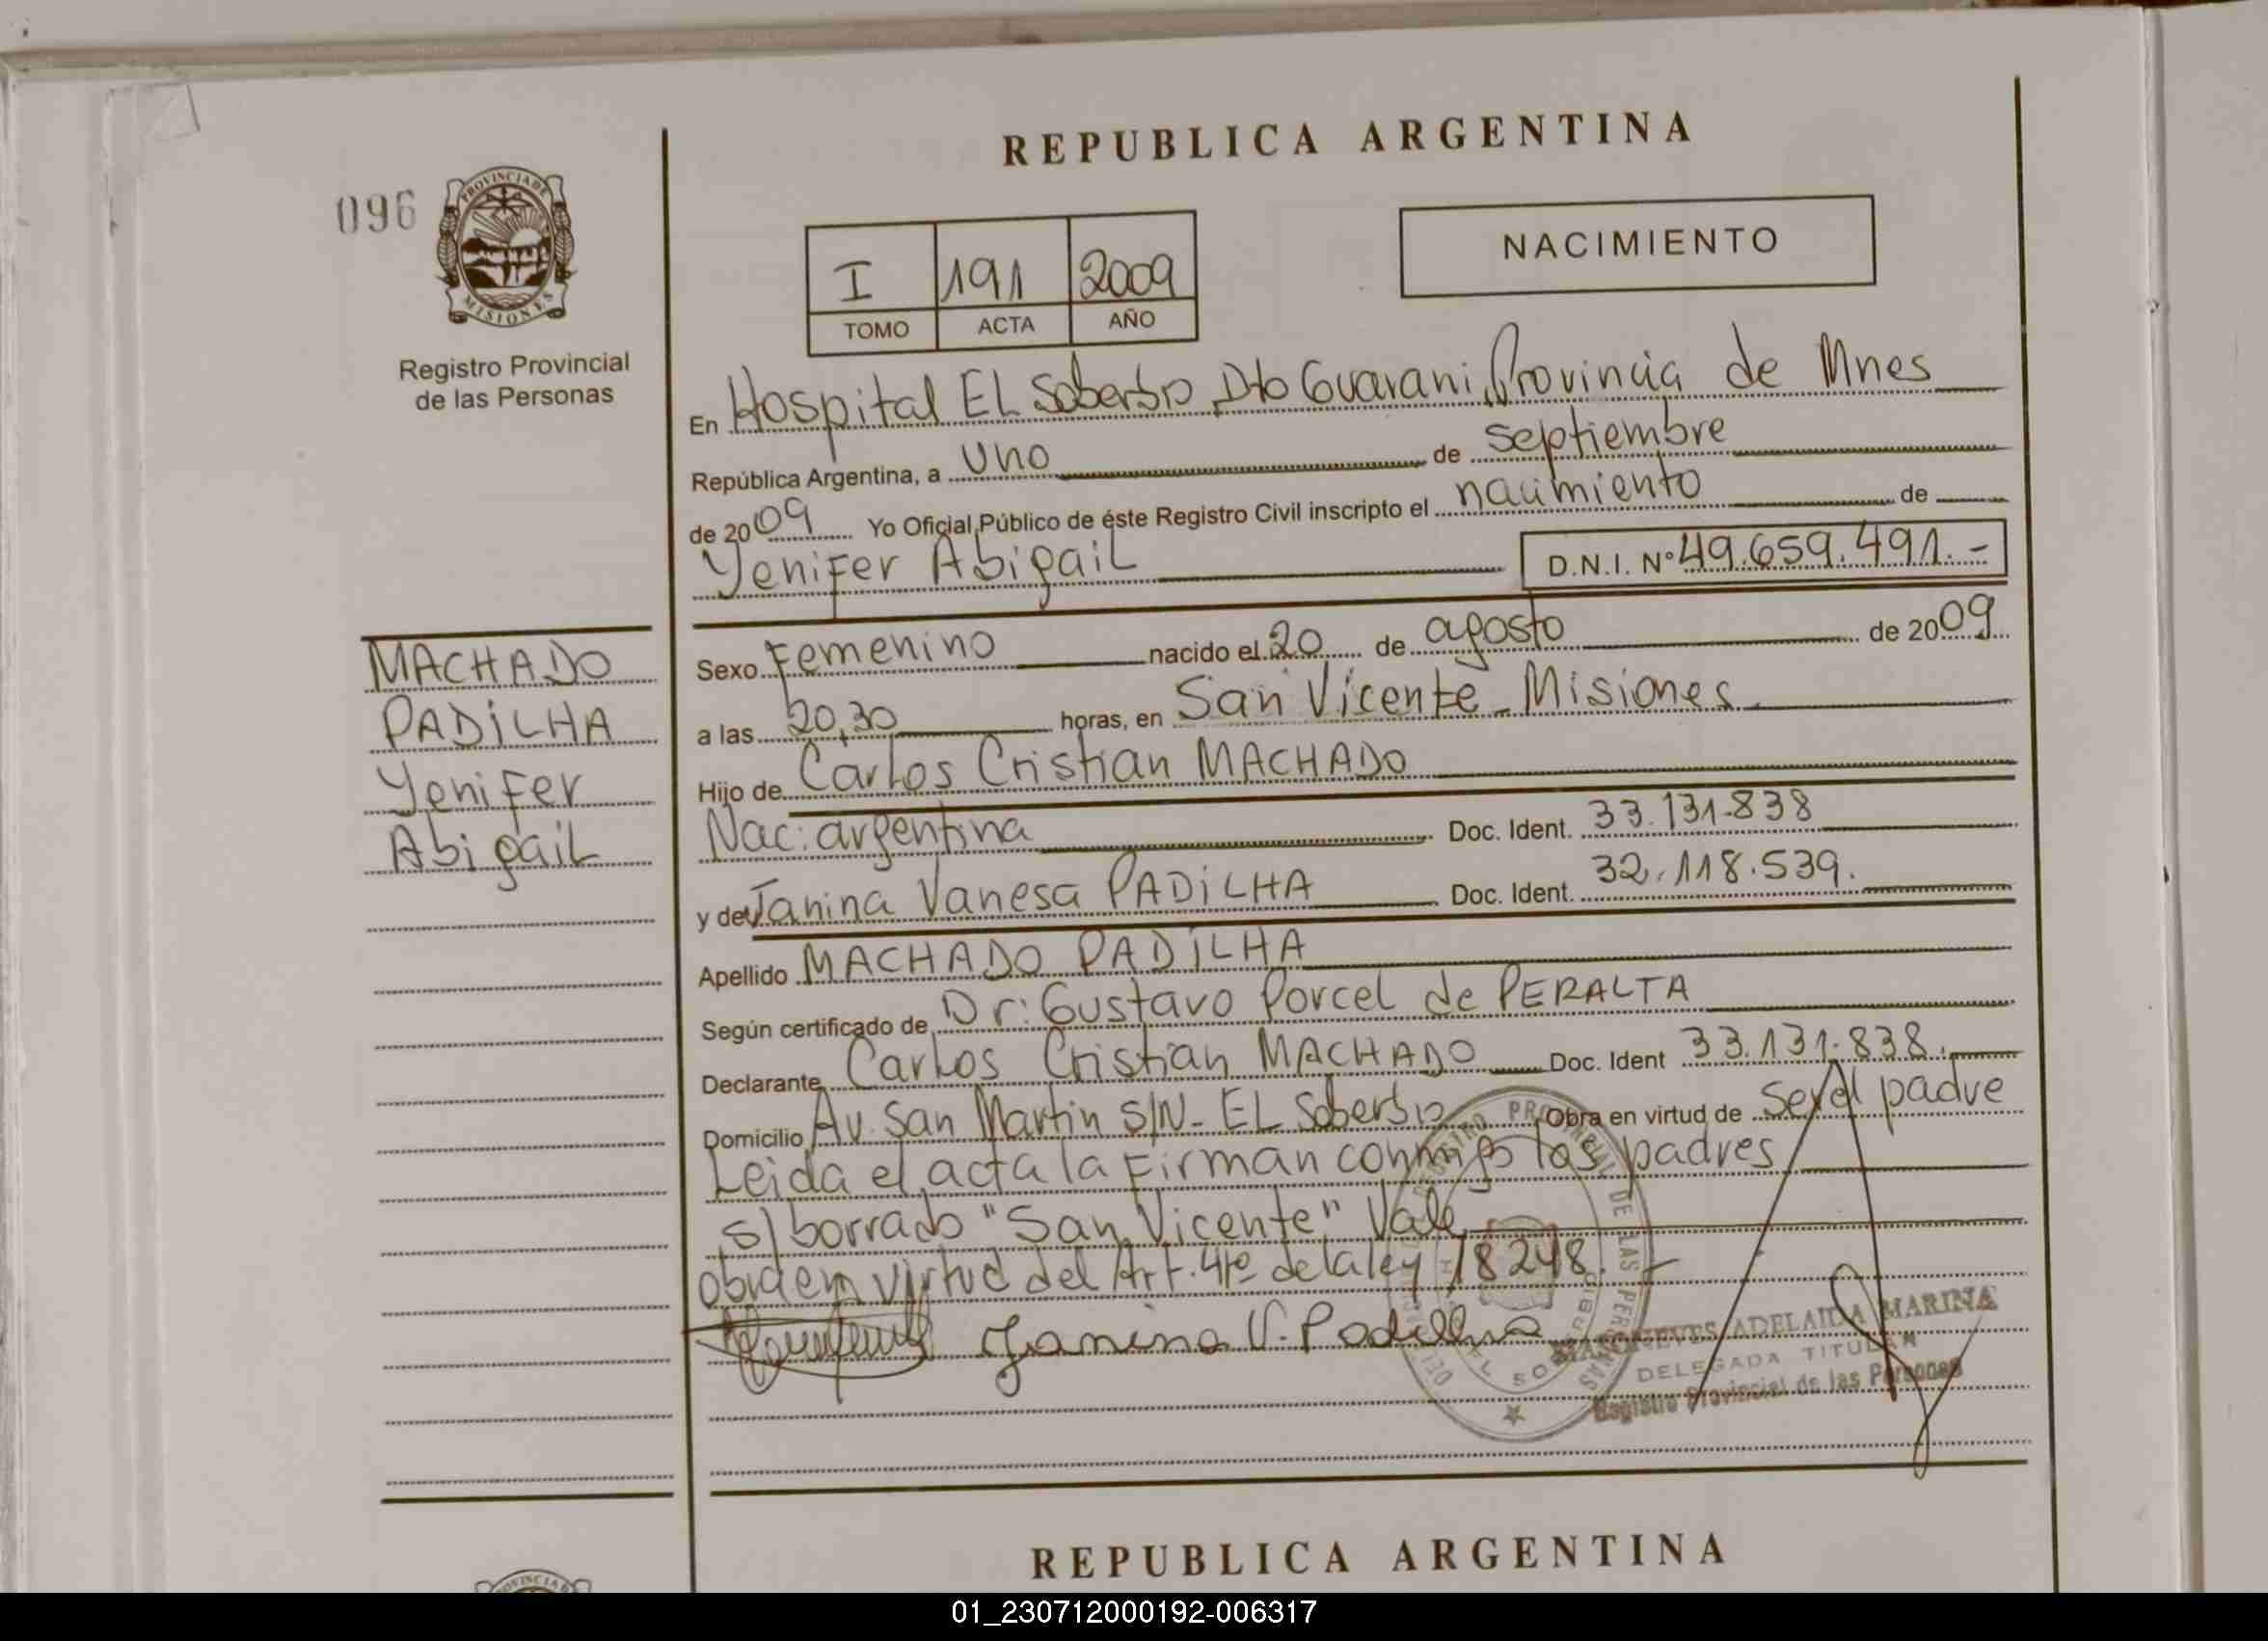 REPUBLICA ARGENTINA
096
PROVINCIA DE
MISIONES
Registro Provincial
de las Personas
I 191 2009
TOMO ACTA AÑO
NACIMIENTO
En Hospital EL Soberbio, Dto Guarani, Provincia de Mnes
República Argentina, a uno de septiembre
de 2009 Yo Oficial Público de éste Registro Civil inscripto el nacimiento de
Yenifer Abigail D.N.I. Nº 49.659.491.-
MACHADO
PADILHA
Yenifer
Abigail
Sexo Femenino nacido el 20 de agosto de 2009
a las 20,30 horas, en San Vicente - Misiones
Hijo de Carlos Cristian MACHADO
Nac: argentina Doc. Ident. 33.131.838
y de Janina Vanesa PADILHA Doc. Ident. 32.118.539.
Apellido MACHADO PADILHA
Según certificado de Dr: Gustavo Porcel de PERALTA
Declarante Carlos Cristian MACHADO Doc. Ident 33.131.838.
Domicilio Av. San Martin S/N - EL Soberbio Obra en virtud de ser el padre
Leida el acta la Firman conmigo los padres
S/ borrado "San Vicente" Vale
obra en virtud del Art. 4to de la ley 18248.-
Janina V. Padilha
ADELAIDA MARINA
DELEGADA TITULAR
Registro Provincial de las Personas
REPUBLICA ARGENTINA
01_230712000192-006317